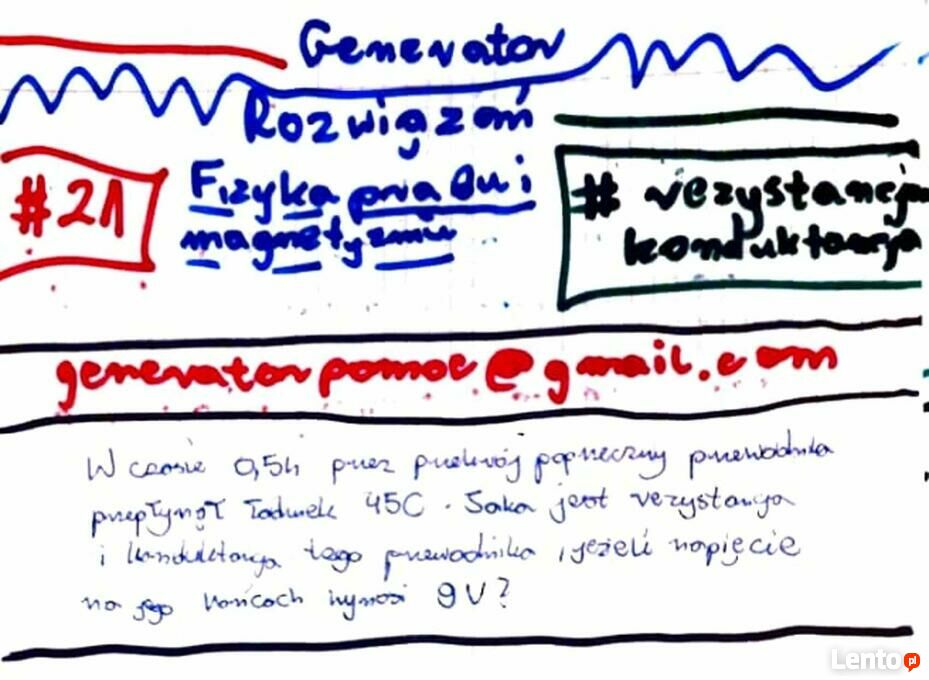 Generator
Rozwiązań
#21
Fizyka prądu i
magnetyzmu
# rezystancja
konduktancja
generatorpomoc@gmail.com
W czasie 0,5h przez przekrój poprzeczny przewodnika
przepłynął ładunek 45C. Jaka jest rezystancja
i konduktancja tego przewodnika, jeżeli napięcie
na jego końcach wynosi 9V?
Lento.pl